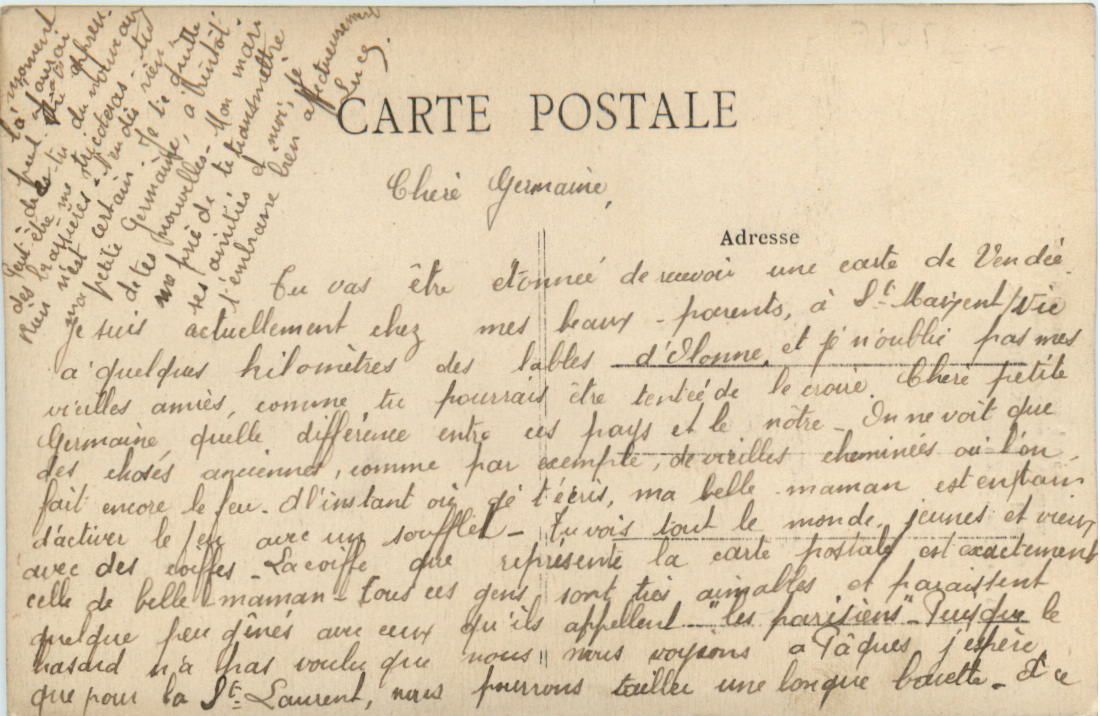 CARTE POSTALE
Adresse
Chère Germaine,
Tu vas être étonnée de recevoir une carte de Vendée.
Je suis actuellement chez mes beaux-parents, à St. Maixent/Vie
à quelques kilomètres des Sables d'Olonne, et je n'oublie pas mes
vieilles amies, comme tu pourrais être tentée de le croire. Chère petite
Germaine, quelle différence entre ces pays et le nôtre - On ne voit que
des choses anciennes, comme par exemple, de vieilles cheminées où l'on
fait encore le feu. A l'instant où je t'écris, ma belle-maman est en train
d'activer le feu avec un soufflet - Tu vois tout le monde, jeunes et vieux
avec des coiffes - La coiffe que représente la carte postale est exactement
celle de belle-maman - Tous ces gens sont très aimables et paraissent
quelque peu gênés avec ceux qu'ils appellent "les parisiens" - Puisque le
hasard n'a pas voulu que nous nous voyions à Pâques, j'espère
que pour la St. Laurent, nous pourrons tailler une longue bavette - A ce
moment là, j'aurai
peut-être appris
des
peut être me tricoteras-tu
des brassières - N'en dis rien
Rien n'est certain. Je te quitte
ma petite Germaine, à bientôt
de tes nouvelles - Mon mari
me prie de te transmettre
ses amitiés et moi, je
t'embrasse bien affectueusement
Lucy.